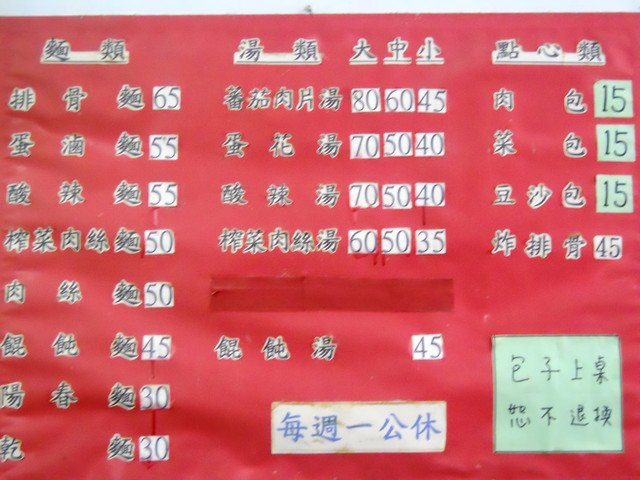 麵類
排骨麵 65
蛋滷麵 55
酸辣麵 55
榨菜肉絲麵 50
肉絲麵 50
餛飩麵 45
陽春麵 30
乾麵 30
湯類 大 中 小
蕃茄肉片湯 80 60 45
蛋花湯 70 50 40
酸辣湯 70 50 40
榨菜肉絲湯 60 50 35
餛飩湯 45
每週一公休
點心類
肉包 15
菜包 15
豆沙包 15
炸排骨 45
包子上桌
恕不退換